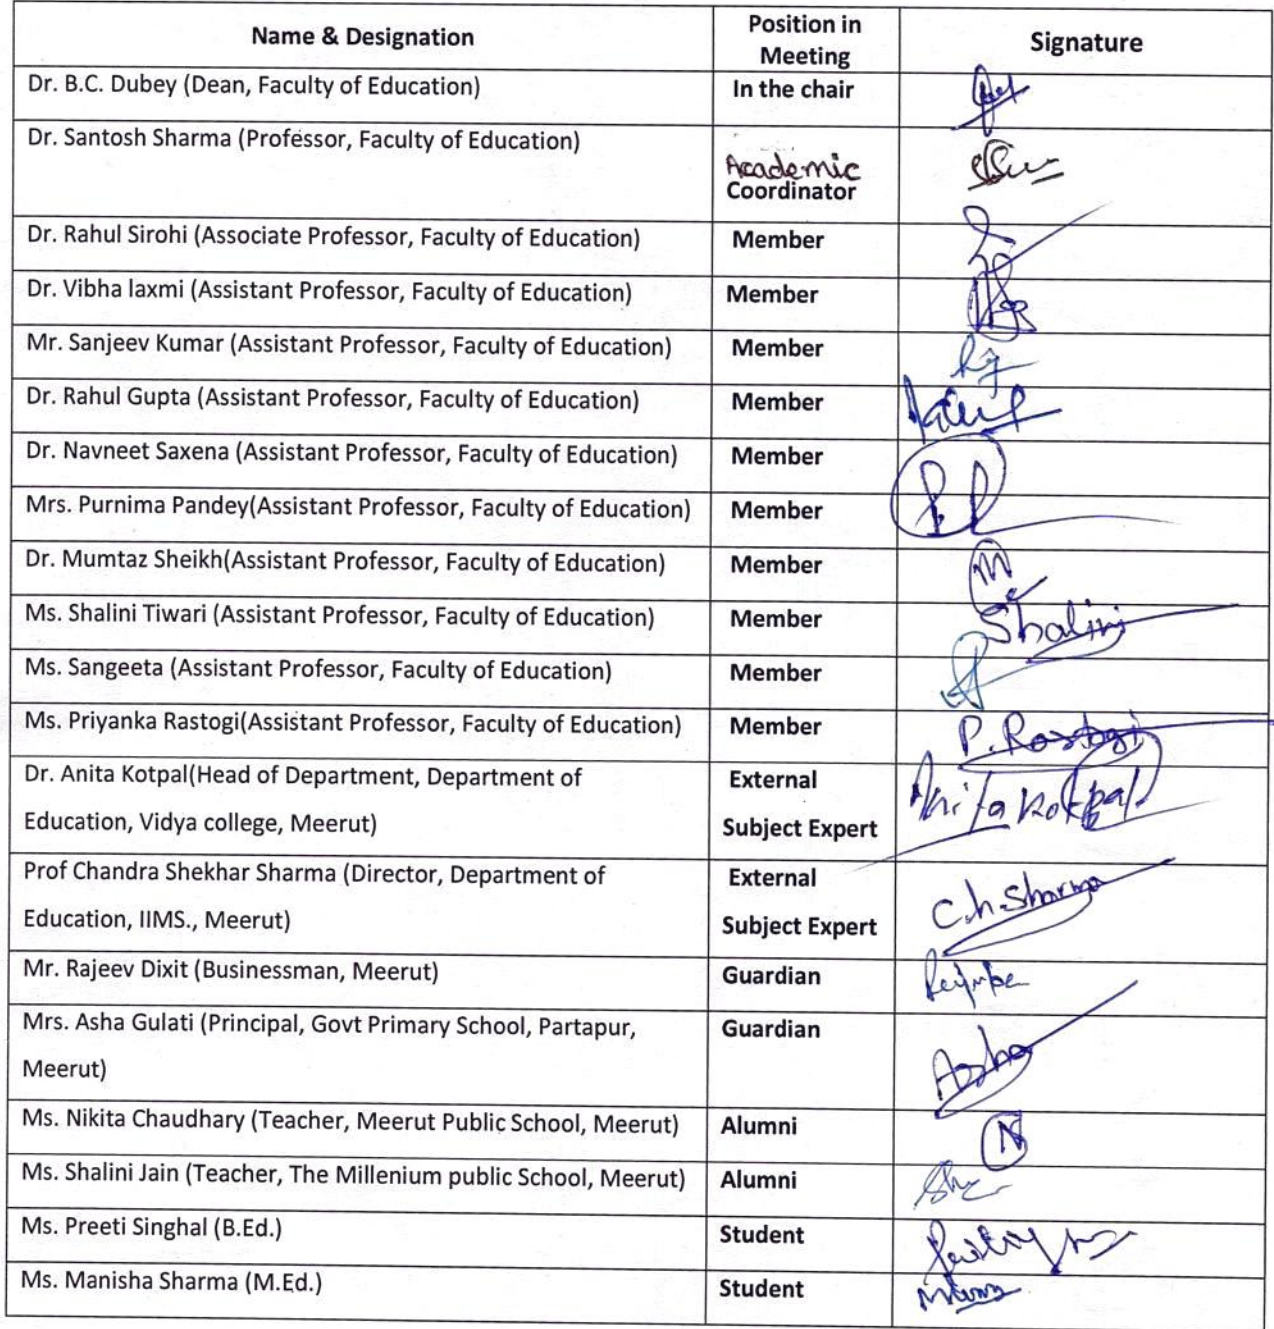 Name & Designation
Position in
Meeting
Signature
Dr. B.C. Dubey (Dean, Faculty of Education)
In the chair
Dr. Santosh Sharma (Professor, Faculty of Education)
Academic
Coordinator
Dr. Rahul Sirohi (Associate Professor, Faculty of Education)
Member
Dr. Vibha laxmi (Assistant Professor, Faculty of Education)
Member
Mr. Sanjeev Kumar (Assistant Professor, Faculty of Education)
Member
Dr. Rahul Gupta (Assistant Professor, Faculty of Education)
Member
Dr. Navneet Saxena (Assistant Professor, Faculty of Education)
Member
Mrs. Purnima Pandey(Assistant Professor, Faculty of Education)
Member
Dr. Mumtaz Sheikh(Assistant Professor, Faculty of Education)
Member
Ms. Shalini Tiwari (Assistant Professor, Faculty of Education)
Member
Shalini
Ms. Sangeeta (Assistant Professor, Faculty of Education)
Member
Ms. Priyanka Rastogi(Assistant Professor, Faculty of Education)
Member
P. Rastogi
Dr. Anita Kotpal(Head of Department, Department of
Education, Vidya college, Meerut)
External
Subject Expert
Anita Kotpal
Prof Chandra Shekhar Sharma (Director, Department of
Education, IIMS., Meerut)
External
Subject Expert
C.h.Sharma
Mr. Rajeev Dixit (Businessman, Meerut)
Guardian
Mrs. Asha Gulati (Principal, Govt Primary School, Partapur,
Meerut)
Guardian
Asha
Ms. Nikita Chaudhary (Teacher, Meerut Public School, Meerut)
Alumni
N
Ms. Shalini Jain (Teacher, The Millenium public School, Meerut)
Alumni
Ms. Preeti Singhal (B.Ed.)
Student
Ms. Manisha Sharma (M.Ed.)
Student